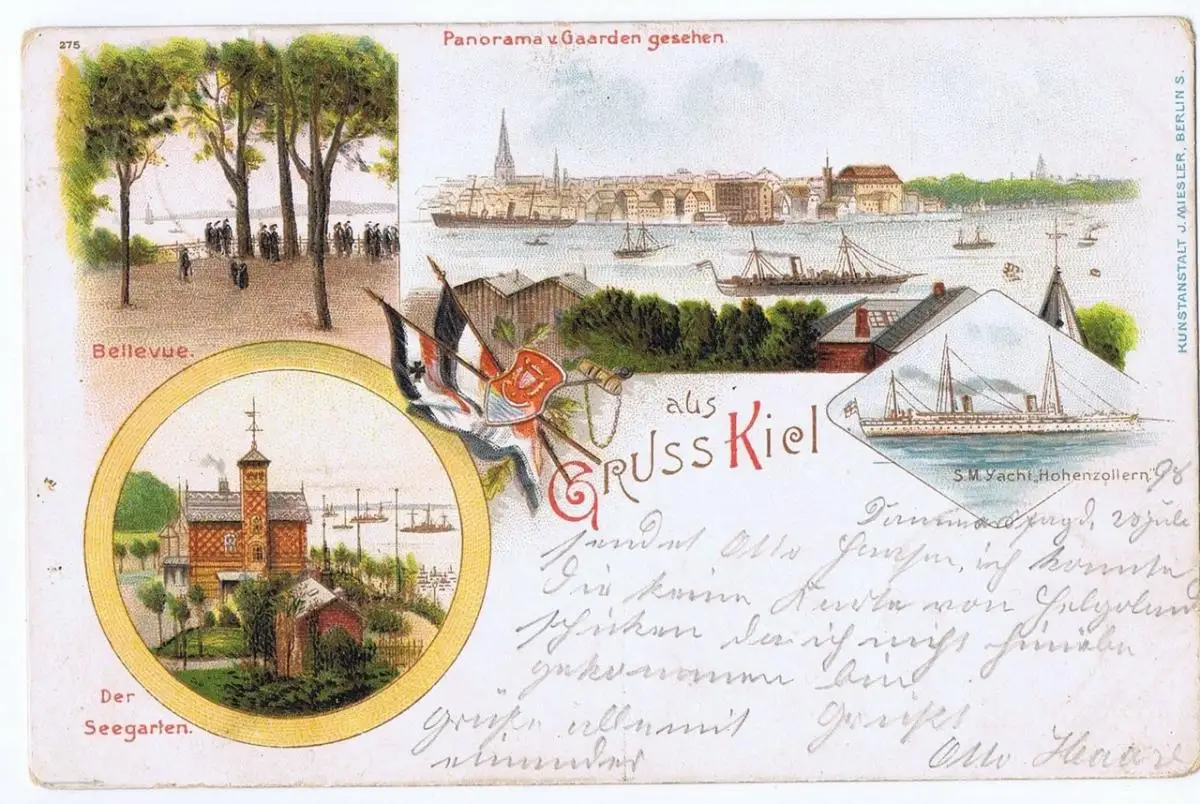 275
Panorama v. Gaarden gesehen.
KUNSTANSTALT J. MIESLER, BERLIN S.
Bellevue.
aus
GRUSS Kiel
S.M. Yacht „Hohenzollern"
98
Der
Seegarten.
20 Juli
sendet Otto ich konnte
Die keine Karte von Helgoland
schicken da ich nicht hinüber
gekommen bin
Grüße alle mit Grüßt
einander Otto